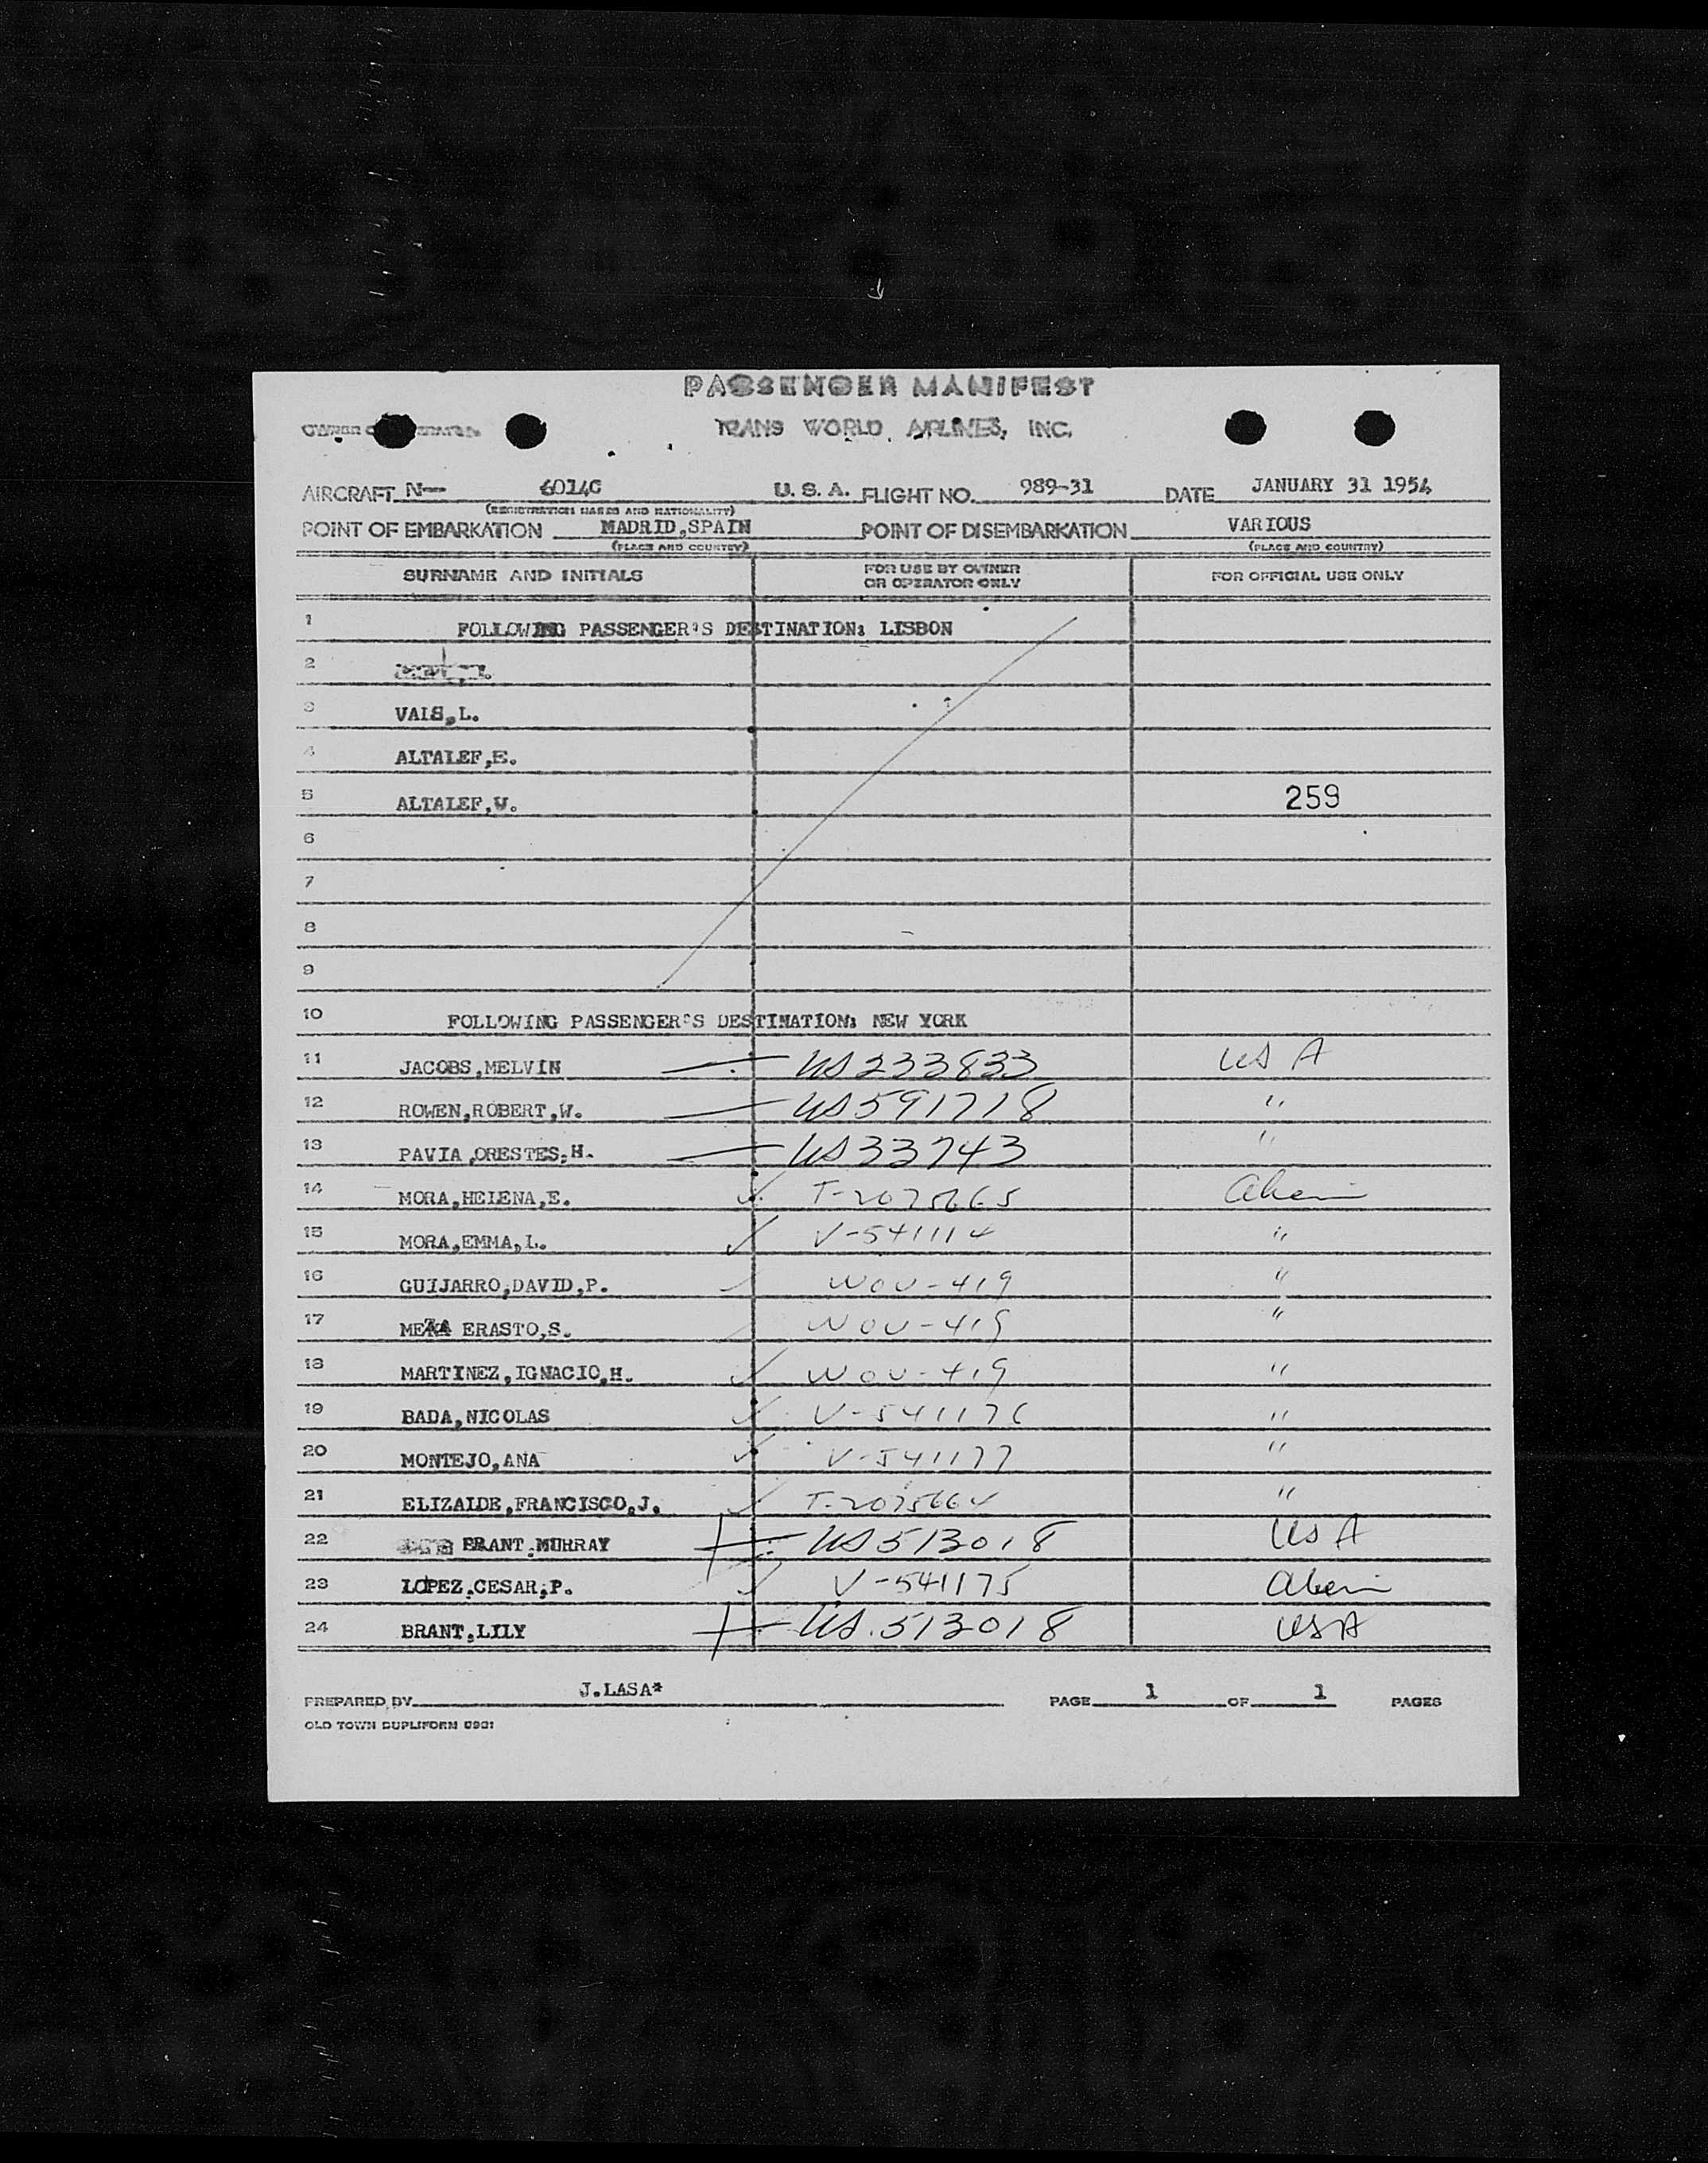 PASSENGER MANIFEST
OWNER OR OPERATOR TRANS WORLD AIRLINES, INC.
AIRCRAFT N— 6014C U. S. A. FLIGHT NO. 989-31 DATE JANUARY 31 1954
(REGISTRATION MARKS AND NATIONALITY)
POINT OF EMBARKATION MADRID,SPAIN POINT OF DISEMBARKATION VARIOUS
(PLACE AND COUNTRY) (PLACE AND COUNTRY)
SURNAME AND INITIALS FOR USE BY OWNER OR OPERATOR ONLY FOR OFFICIAL USE ONLY
1 FOLLOWING PASSENGER'S DESTINATION: LISBON
2
3 VAIS,L.
4 ALTALEF,E.
5 ALTALEF,W. 259
6
7
8
9
10 FOLLOWING PASSENGER'S DESTINATION: NEW YORK
11 JACOBS,MELVIN — US 233833 US A
12 ROWEN,ROBERT,W. — US 591718 "
13 PAVIA,ORESTES,H. — US 33743 "
14 MORA,HELENA,E. ✓ T-2075665 Alien
15 MORA,EMMA,L. ✓ V-541114 "
16 GUIJARRO,DAVID,P. ✓ WOU-419 "
17 MEZA ERASTO,S. WOU-419 "
18 MARTINEZ,IGNACIO,H. ✓ WOU-419 "
19 BADA,NICOLAS ✓ V-541176 "
20 MONTEJO,ANA ✓ V-541177 "
21 ELIZALDE,FRANCISCO,J. ✓ T-2075664 "
22 BRANT,MURRAY US 513018 US A
23 LOPEZ,CESAR,P. ✓ V-541175 Alien
24 BRANT,LILY US.513018 USA
PREPARED BY J.LASA* PAGE 1 OF 1 PAGES
OLD TOWN DUPLIFORM